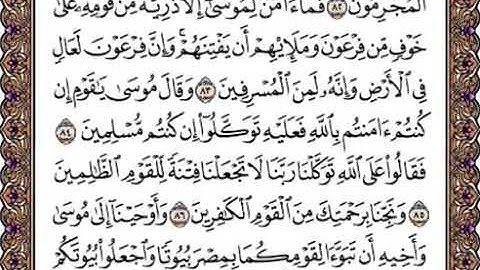 ٱلْمُجْرِمُونَ ٨٢ فَمَآ ءَامَنَ لِمُوسَىٰٓ إِلَّا ذُرِّيَّةٌ مِّن قَوْمِهِۦ عَلَىٰ
خَوْفٍ مِّن فِرْعَوْنَ وَمَلَإِي۟هِمْ أَن يَفْتِنَهُمْ ۚ وَإِنَّ فِرْعَوْنَ لَعَالٍ
فِى ٱلْأَرْضِ وَإِنَّهُۥ لَمِنَ ٱلْمُسْرِفِينَ ٨٣ وَقَالَ مُوسَىٰ يَٰقَوْمِ إِن
كُنتُمْ ءَامَنتُم بِٱللَّهِ فَعَلَيْهِ تَوَكَّلُوٓا۟ إِن كُنتُم مُّسْلِمِينَ ٨٤
فَقَالُوا۟ عَلَى ٱللَّهِ تَوَكَّلْنَا رَبَّنَا لَا تَجْعَلْنَا فِتْنَةً لِّلْقَوْمِ ٱلظَّٰلِمِينَ
٨٥ وَنَجِّنَا بِرَحْمَتِكَ مِنَ ٱلْقَوْمِ ٱلْكَٰفِرِينَ ٨٦ وَأَوْحَيْنَآ إِلَىٰ مُوسَىٰ
وَأَخِيهِ أَن تَبَوَّءَا لِقَوْمِكُمَا بِمِصْرَ بُيُوتًا وَٱجْعَلُوا۟ بُيُوتَكُمْ